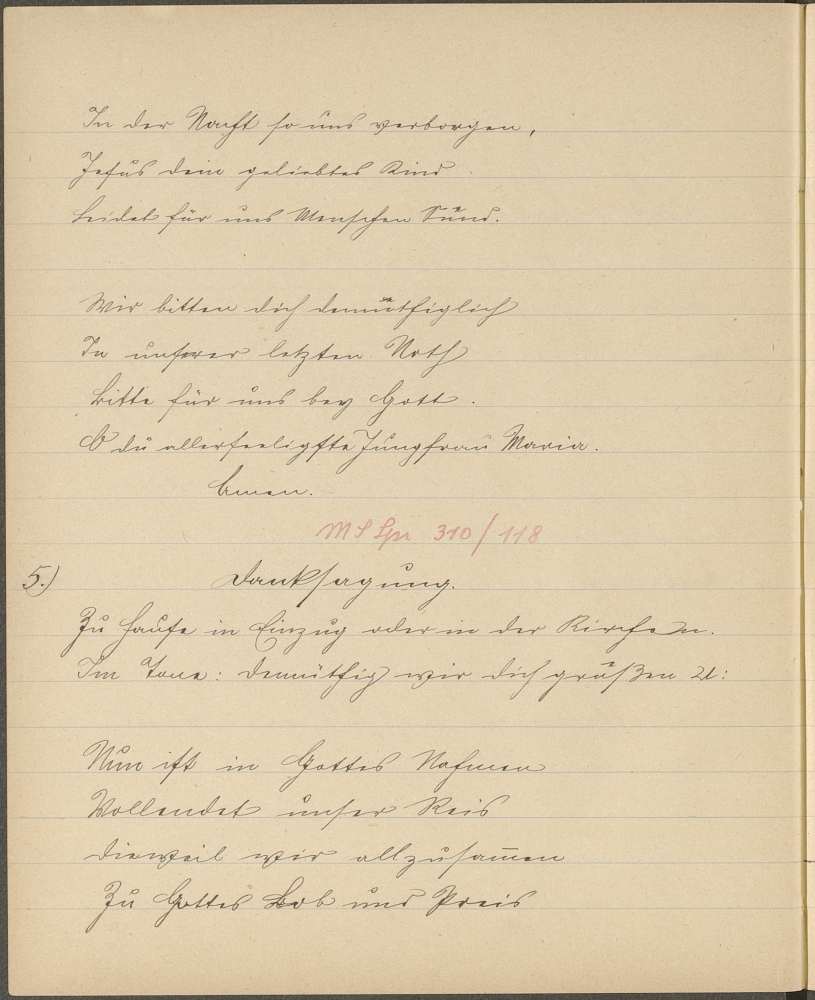 In der Nacht so uns verborgen,
Jesus dein geliebtes Kind
Leidet für uns Menschen Sünd.
Wir bitten dich demüthiglich
In unserer letzten Noth
Bitte für uns bey Gott.
O du allerseeligste Jungfrau Maria.
Amen.
MS Spr 310/118
5.) Danksagung.
Zu Hause in Einzug oder in der Kirchen.
Im Tone: Demüthig wir dich grüßen etc:
Nun ist in Gottes Nahmen
Vollendet unser Reis
Dieweil wir allzusam̅en
Zu Gottes Lob und Preis